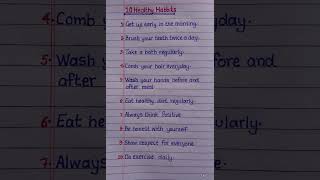 10 Healthy Habits
1. Get up early in the morning.
2. Brush your teeth twice a day.
3. Take a bath regularly.
4. Comb your hair everyday.
5. Wash your hands before and
after meal
6. Eat healthy diet regularly.
7. Always think Positive
8. Be honest with yourself
9. Show respect for everyone
10. Do exercise daily.
4. Comb
5. Wash
after
6. Eat
7. Always
everyday.
before and
regularly.